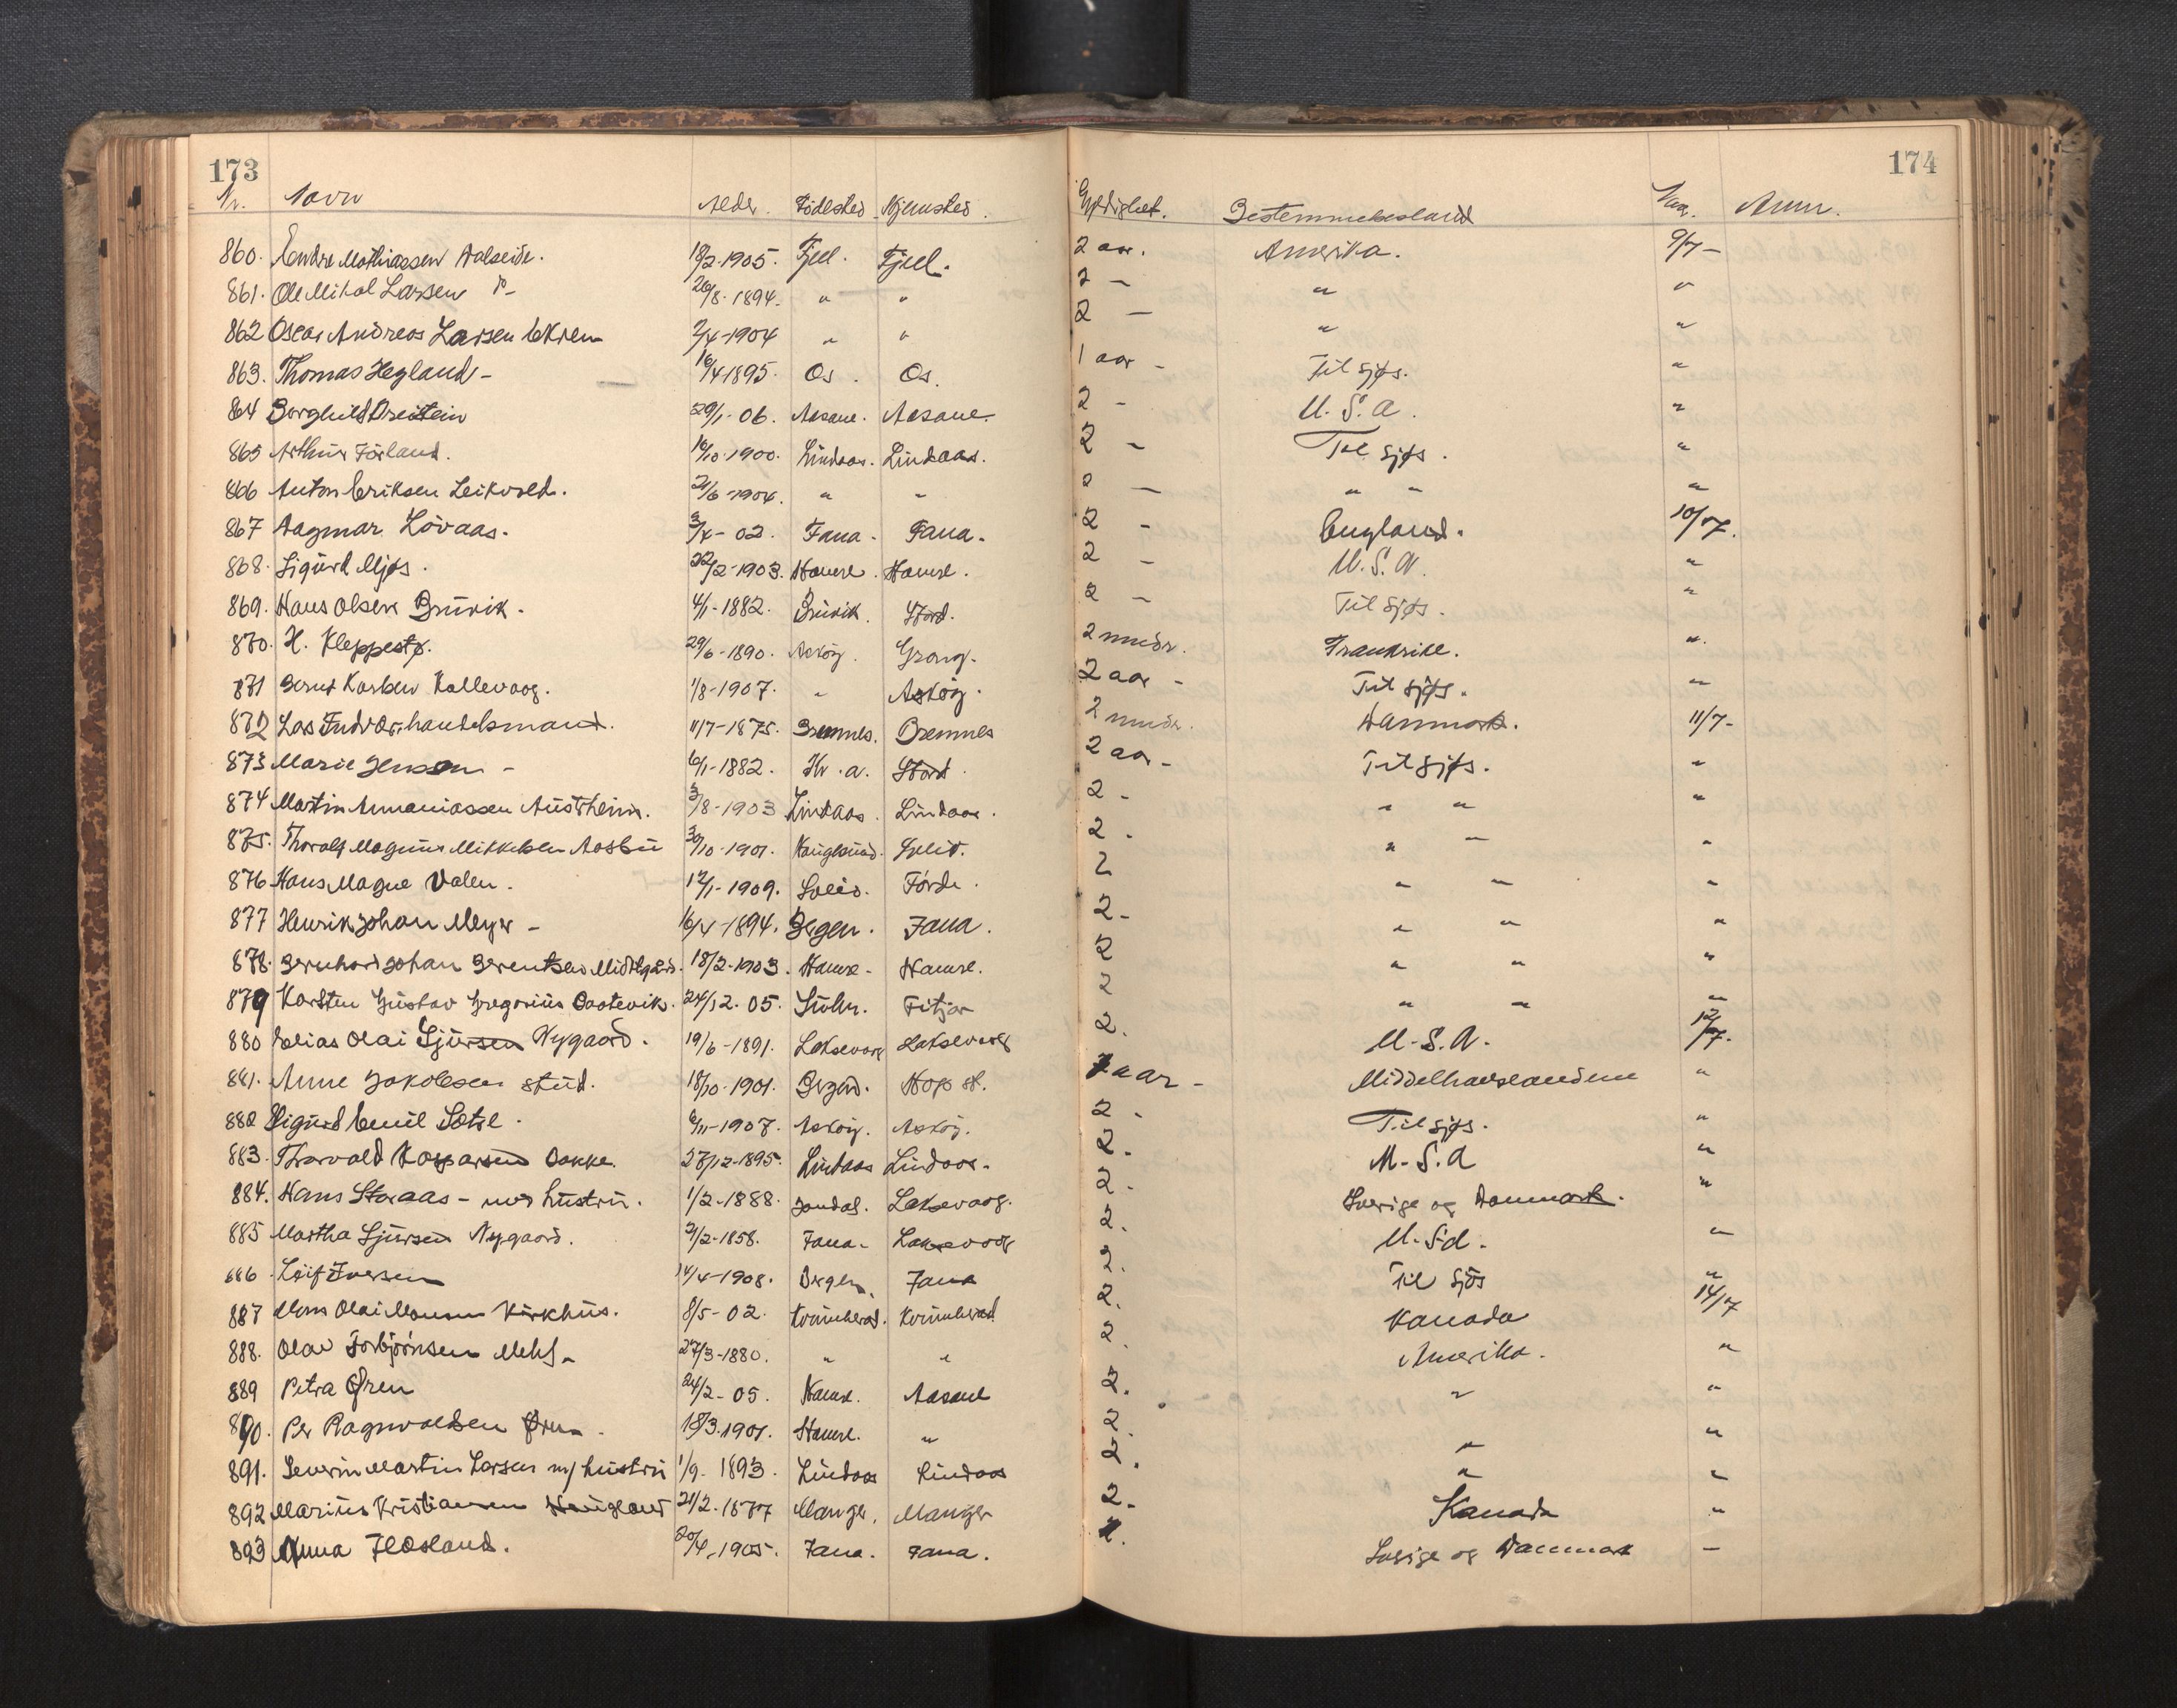 173
174
Nr. Navn Alder. Födested Hjemsted. Gyldighet. Bestemmelsesland Anm.
860. Endre Mathiassen Dalseide. 18/2-1905. Fjell. Fjell. 2 aar. Amerika. 9/7-
861. Ole Mikal Larsen do- 26/8-1894. " " 2 - " "
862 Oscar Andreas Larsen Ekren 2/4-1904 " " 2 - " "
863. Thomas Hegland- 16/4-1895. Os. Os. 1 aar - Til sjøs. "
864 Borghild Breistein 29/1-06. Aasane. Aasane. 2 - U.S.A. "
865 Arthur Förland. 16/10-1900. Lindaas. Lindaas. 2 - Til sjøs. "
866 Anton Eriksen Leikvold. 21/6-1904. " " 2 - " " "
867 Dagmar Lövaas. 3/4-02. Fana. Fana. 2 - England. 10/7.
868. Sigurd Mjøs. 22/2-1903. Hamre. Hamre. 2 - U.S.A. "
869. Hans Olsen Bruvik. 4/1-1882. Bruvik. Stord. 2 - Til sjøs. "
870. H. Kleppestø. 29/6-1890. Asköy. Grong. 2 mndr. Frankrike. "
871 Bernt Karsten Kallevaag. 1/8-1907. " Asköy. 2 aar - Til sjøs. "
872 Lars Indvær, handelsmand. 11/7-1875. Bremnes. Bremnes 2 mndr. Danmark. 11/7-
873 Marie Jensen - 6/1-1882. Kr.a. Stord. 2 aar - Til sjøs. "
874 Martin Annaniassen Austrheim. 3/8-1903 Lindaas. Lindaas. 2 - " " "
875. Thoralf Magnus Mikkelsen Aasbu 30/10-1901. Haugesund. Sveio. 2. " " "
876 Hans Magne Valen. 12/1-1909. Sveio. Förde. 2 " " "
877 Henrik Johan Meyer - 16/4-1894. Bergen. Fana. 2- " " "
878. Bernhard Johan Berentsen Midtgård. 18/2-1903. Hamre- Hamre. 2 " " "
879 Karsten Gustav Gregorius 24/12-05. Fitjar 2 " " "
880 Elias Olai Sjursen Nygaard. 19/6-1891. Laksevaag Laksevaag 2. U.S.A. 12/7.
881. Anne Jakobsen stud. 18/10-1901. Bergen. Hop st. aar - Middelhavslandene "
882 Sigurd Emil Sætre. 6/11-1907. Asköy. Asköy. 2 - Til sjøs. "
883. Thorvald Kaspersen Bakke. 27/12-1895. Lindaas Lindaas. 2. U.S.A "
884. Hans Storaas - med hustru. 1/2-1888. Jondal. Laksevaag. 2. Sverige og Danmark. "
885 Martha Sjursen Nygaard. 21/2-1858. Fana. Laksevaag 2. U.S.A. "
886. Leif Iversen 14/4-1908. Bergen. Fana 2. Til sjös "
887 Mons Olai Monsen Kirkhus. 8/5-02. Kvinnherad. Kvinnherad 2. Kanada 14/7
888. Olav Torbjörnsen Mehl. 27/3-1880. " " 2. Amerika. "
889 Petra Øren 24/2-05. Hamre. Aasane 2. " "
890. Per Ragnvaldsen Øren. 18/3.1901. Hamre. " 2. " "
891. Severin Martin Larsen m/ hustru 1/9-1893. Lindaas Lindaas 2. " "
892 Marius Kristiansen Haugland 21/2-1877 Manger. Manger 2. Kanada "
893 Anna Flæsland. 20/4-1905. Fana. Fana. Sverige og Danmark -